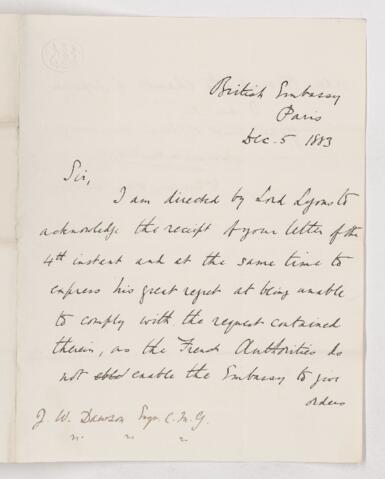 British Embassy
Paris
Dec. 5 1883
Sir,
I am directed by Lord Lyons to
acknowledge the receipt of your letter of the
4th instant and at the same time to
express his great regret at being unable
to comply with the request contained
therein, as the French Authorities do
not enable the Embassy to give
orders
J. W. Dawson Esqr. C.M.G.
" " "